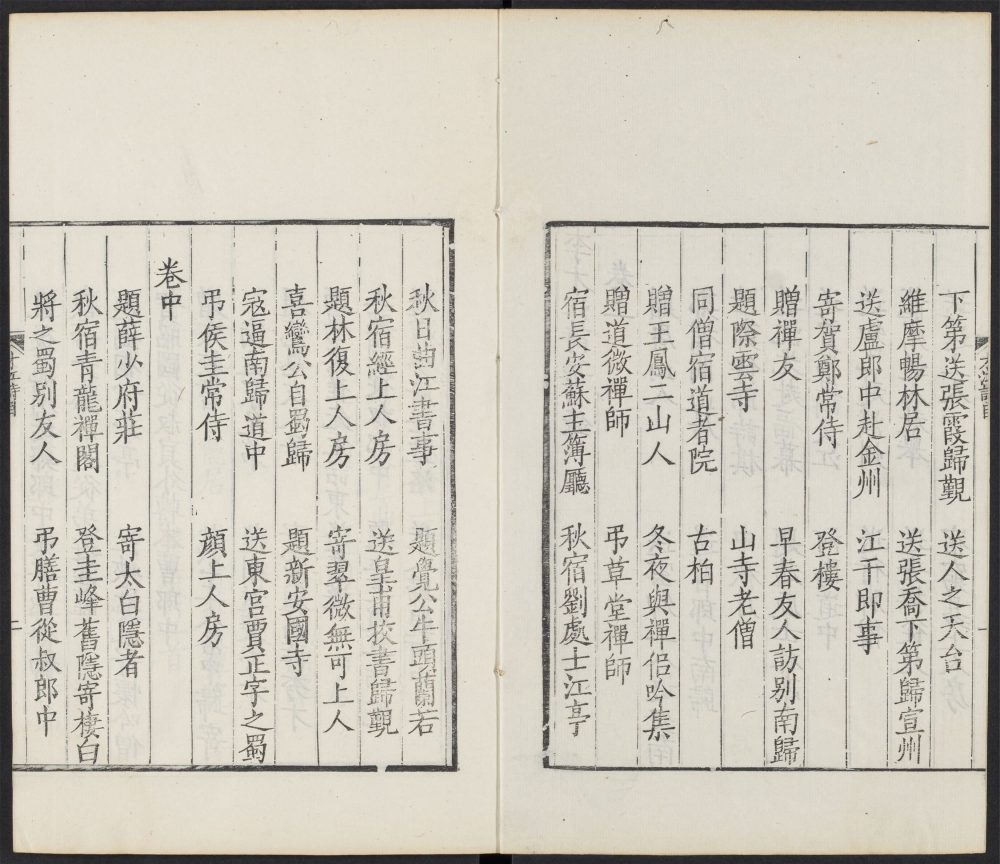 下第送張霞歸覲　送人之天台
維摩暢林居　送張喬下第歸宣州
送盧郎中赴金州　江干即事
寄賀鄭常侍　登樓
贈禪友　早春友人訪別南歸
題際雲寺　山寺老僧
同僧宿道者院　古柏
贈王鳳二山人　冬夜與禪侶吟集
贈道微禪師　弔草堂禪師
宿長安蘇主簿廳　秋宿劉處士江亭
秋日曲江書事　題覺公牛頭蘭若
秋宿經上人房　送皇甫校書歸覲
題林復上人房　寄翠微無可上人
喜鸞公自蜀歸　題新安國寺
寇逼南歸道中　送東宮賈正字之蜀
弔侯圭常侍　顏上人房
卷中
題薛少府莊　寄太白隱者
秋宿青龍禪閣　登圭峰舊隱寄棲白
將之蜀別友人　弔膳曹從叔郎中